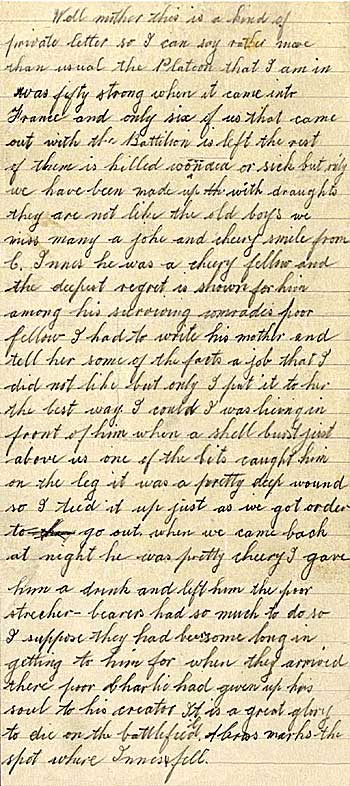 Well mother this is a kind of
private letter so I can say rather more
than usual the Platoon that I am in
was fifty strong when it came into
France and only six of us that came
out with the Battilion is left the rest
of them is killed wonded or sick but
we have been made up with draughts
they are not like the old boys we
miss many a joke and cheery smile from
C. Innes he was a cheery fellow and
the deepest regret is shown for him
among his sorrowing comrades poor
fellow I had to write his mother and
tell her some of the facts a job that I
did not like but only I put it to her
the best way I could I was lieing in
front of him when a shell burst just
above us one of the bits caught him
on the leg it was a pretty deep wound
so I tied it up just as we got order
to go out when we came back
at night he was pretty cheery I gave
him a drink and left him the poor
strecher-bearers had so much to do so
I suppose they had been some long in
getting to him for when they arrived
there poor Charlie had given up his
soul to his creator It is a great glory
to die on the battlefield, A Cross marks the
spot where Innes fell.